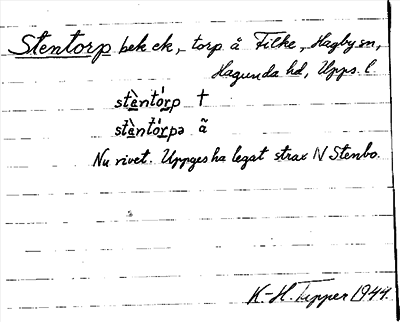 Stentorp bek ek, torp å Filke, Hagby sn,
Hagunda hd, Upps. l
stèntó̀rp †
stèntó̀rpə ã
Nu rivet. Uppges ha legat strax N Stenbo.
K-H. Tipper 1944.